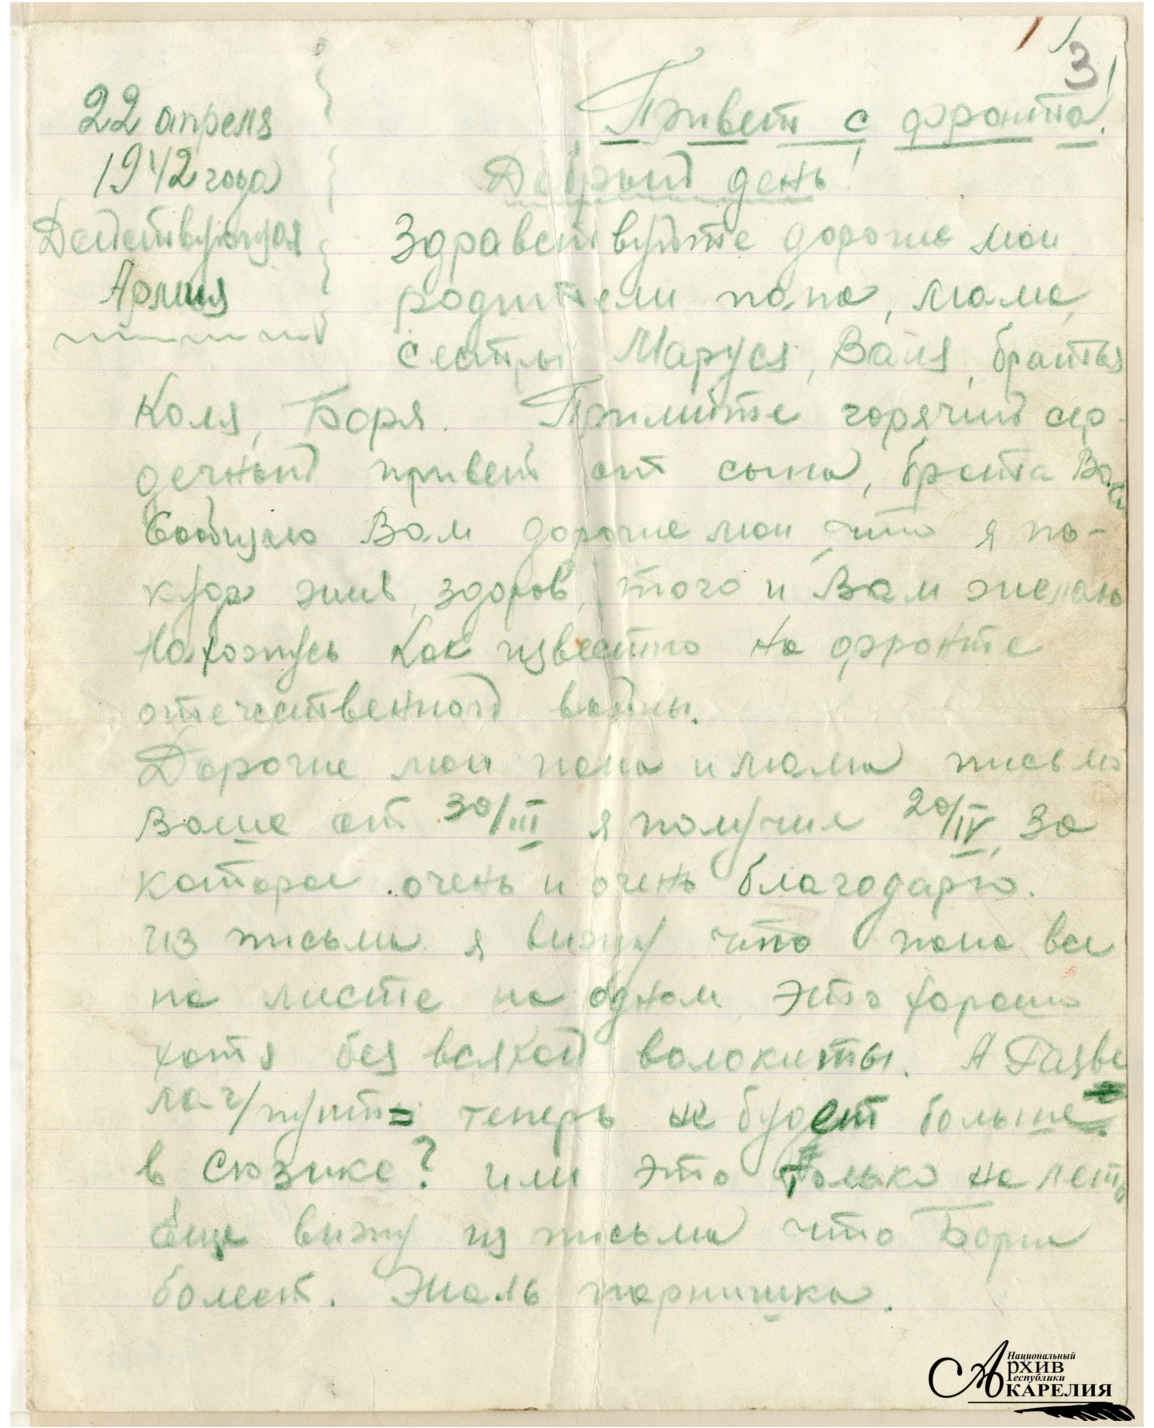 3
22 апреля
1942 года
Действующая
Армия
Привет с фронта!
Добрый день!
Здравствуйте дорогие мои
родители папа, мама,
сестры Маруся, Валя, братья
Коля, Боря. Примите горячий сер-
дечный привет от сына, брата Васи
Сообщаю Вам дорогие мои что я по-
куда жив, здоров, того и Вам желаю
Нахожусь как известно на фронте
отечественной войны.
Дорогие мои папа и мама письмо
Ваше от 30/III я получил 20/IV, за
которое очень и очень благодарю.
из письма я вижу что папа все
на месте на одном. Это хорошо
хотя без всякой волокиты. А Разве
лаг/пункт теперь не будет больше
в Сюзике? или это только на лето
Еще вижу из письма что Боря
болеет. Жаль парнишка.
Национальный
Архив
Республики
Карелия